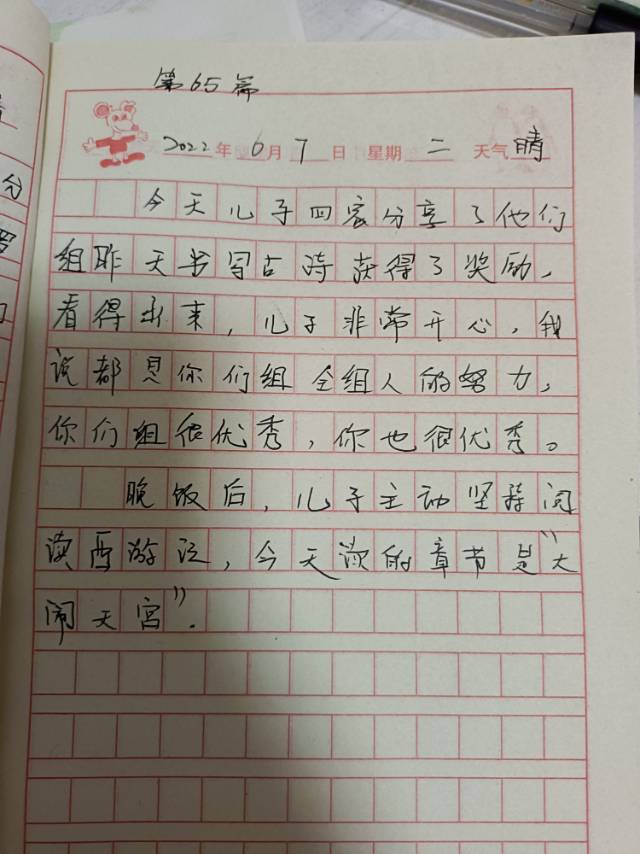 第65篇
2022年6月7日 星期二 天气晴
今天儿子回家分享了他们
组昨天书写古诗获得了奖励,
看得出来,儿子非常开心,我
说都是你们组全组人的努力,
你们组很优秀,你也很优秀。
晚饭后,儿子主动坚持阅
读西游记,今天读的章节是“大
闹天宫”.